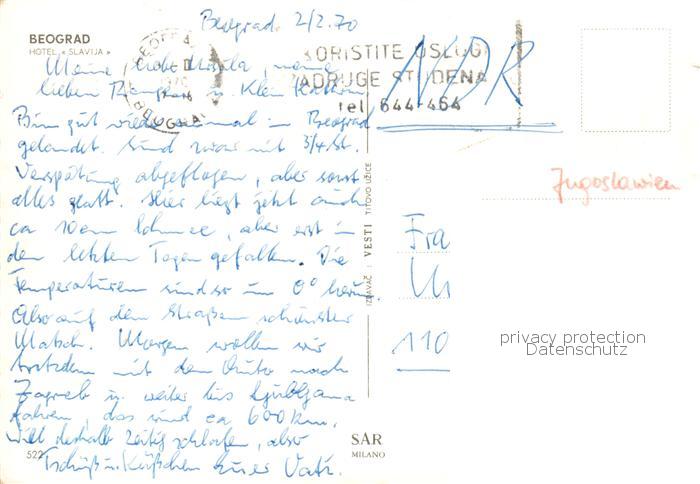 Beograd, 2/2.70
BEOGRAD
HOTEL « SLAVIJA »
Meine liebe Ursula, meine
lieben u. Klein Kathrin
Bin gut wieder einmal in Beograd
gelandet. Sind zwar mit 3/4 St.
Verspätung abgeflogen, aber sonst
alles glatt. Hier liegt jetzt auch
ca 10 cm Schnee, aber erst in
den letzten Tagen gefallen. Die
Temperaturen sind so um 0° herum.
Also auf den Straßen schönster
Matsch. Morgen wollen wir
trotzdem mit dem Auto nach
Zagreb u. weiter bis Ljubljana
fahren, das sind ca 600 km,
will deshalb zeitig schlafen, also
Tschüß u. Küßchen Euer Vati.
522
BEOGRAD
1970
KORISTITE USLUGE
ZADRUGE STUDENATA
tel. 644-464
NDR
IZDAVAČ : VESTI TITOVO UŽICE
Jugoslawien
Fra
110
privacy protection
Datenschutz
SAR
MILANO